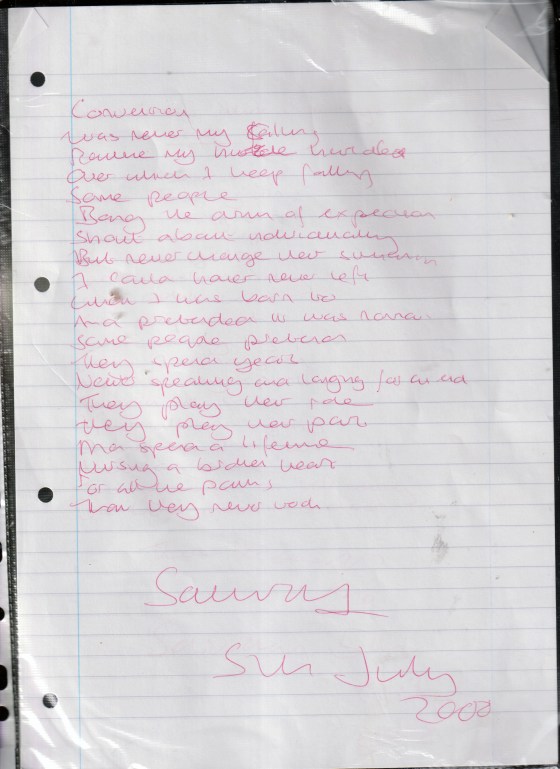 Convention
Was never my calling
Rather my hurdle
Over which I keep falling
Some people
Bang the drum of expression
Shout about individuality
But never change their
I could have never left
When I was born to
And pretended it was normal
Some people pretend
They spend years
Never speaking and longing for an end
They play their role
They play their part
And spend a lifetime
Nursing a broken heart
For all the paths
That they never took
July
2000